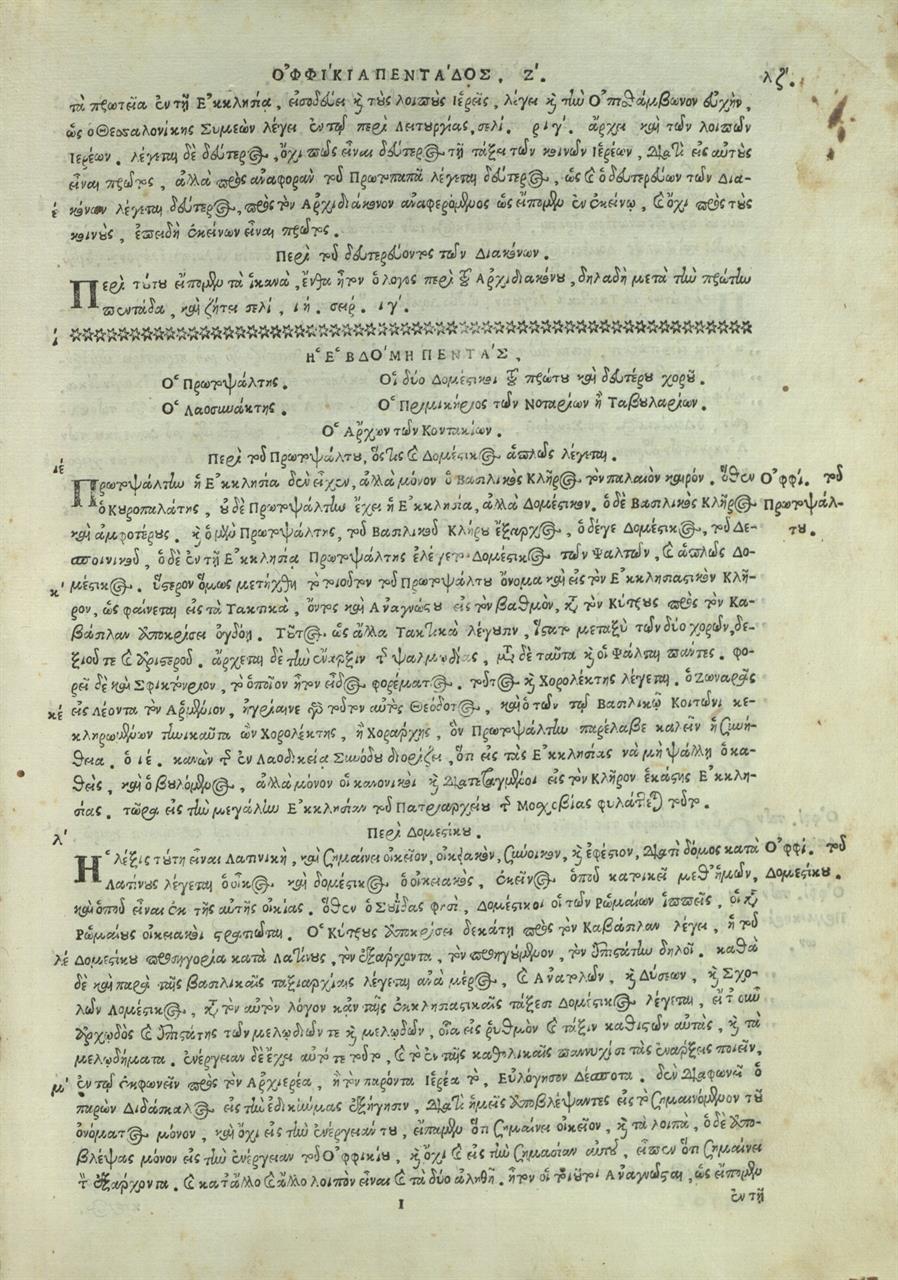 ΟΦΦΙΚΙΑ ΠΕΝΤΑΔΟΣ, Ζ. λζ.
τὰ πρωτεῖα ἐν τῇ Ἐκκλησίᾳ, εἰσοδεύει καὶ τοὺς λοιποὺς Ἱερεῖς, λέγει καὶ τὴν Ὀπισθάμβωνον εὐχὴν,
ὡς ὁ Θεσσαλονίκης Συμεὼν λέγει ἐν τῷ περὶ Λειτουργίας, σελί. ριγ΄. ἄρχει καὶ τῶν λοιπῶν
Ἱερέων. λέγεται δὲ δεύτερος, ὄχι πῶς εἶναι δεύτερος τῇ τάξει τῶν κοινῶν Ἱερέων, διατὶ εἰς αὐτοὺς
εἶναι πρῶτος, ἀλλὰ πρὸς ἀναφορὰν τοῦ Πρωτοπαπᾶ λέγεται δεύτερος, ὡς καὶ ὁ δευτερεύων τῶν Δια-
έ κόνων λέγεται δεύτερος, πρὸς τὸν Ἀρχιδιάκονον ἀναφερόμενος ὡς εἴπομεν ἐν ἐκείνῳ, καὶ ὄχι πρὸς τοὺς
κοινοὺς, ἐπειδὴ ἐκείνων εἶναι πρῶτος.
Περὶ τοῦ δευτερεύοντος τῶν Διακόνων.
Περὶ τούτου εἴπομεν τὰ ἱκανὰ, ἔνθα ἦτον ὁ λόγος περὶ τοῦ Ἀρχιδιακόνου, δηλαδὴ μετὰ τὴν πρώτην
πεντάδα, καὶ ζήτει σελί, ιή. σειρ. ιγ΄.
ί
Ἡ ΕΒΔΟΜΗ ΠΕΝΤΑΣ,
Ὁ Πρωτοψάλτης. Οἱ δύο Δομέστικοι τοῦ πρώτου καὶ δευτέρου χοροῦ.
Ὁ Λαοσυνάκτης. Ὁ Πριμικήριος τῶν Νοταρίων ἢ Ταβουλαρίων.
Ὁ Ἄρχων τῶν Κοντακίων.
ιέ Περὶ τοῦ Πρωτοψάλτου, ὅστις καὶ Δομέστικος ἁπλῶς λέγεται.
Πρωτοψάλτην ἡ Ἐκκλησία δὲν εἶχεν, ἀλλὰ μόνον ὁ Βασιλικὸς Κλῆρος τὸν παλαιὸν καιρόν. ὅθεν Ὀφφί. τοῦ
ὁ Κυροπαλάτης, οὐδὲ Πρωτοψάλτην ἔχει ἡ Ἐκκλησία, ἀλλὰ Δομέστικον. ὁ δὲ Βασιλικὸς Κλῆρος Πρωτοψάλ-
καὶ ἀμφοτέρους. καὶ ὁ μὲν Πρωτοψάλτης, τοῦ Βασιλικοῦ Κλήρου ἔξαρχος, ὁ δέγε Δομέστικος, τοῦ Δε- του.
σποινικοῦ, ὁ δὲ ἐν τῇ Ἐκκλησίᾳ Πρωτοψάλτης ἐλέγετο Δομέστικος τῶν Ψαλτῶν, καὶ ἁπλῶς Δο-
κ΄ μέστικος. ὕστερον ὅμως μετήχθη τὸ τοιοῦτον τοῦ Πρωτοψάλτου ὄνομα καὶ εἰς τὸν Ἐκκλησιαστικὸν Κλῆ-
ρον, ὡς φαίνεται εἰς τὰ Τακτικὰ, ὄντος καὶ Ἀναγνώστου εἰς τὸν βαθμὸν, κατὰ τὸν Κύτζους πρὸς τὸν Κα-
βάσιλαν ἀποκρίσει ὀγδόῃ. Τοῦτος ὡς ἄλλα Τακτικὰ λέγουσιν, ἵστατο μεταξὺ τῶν δύο χορῶν, δε-
ξιοῦ τε καὶ ἀριστεροῦ. ἄρχεται δὲ τὴν ἔναρξιν τῆς ψαλμῳδίας, μετὰ δὲ ταῦτα καὶ οἱ Ψάλται πάντες. φο-
ρεῖ δὲ καὶ Σφικτούριον, τὸ ὁποῖον ἦτον εἶδος φορέματος. τοῦτος καὶ Χορολέκτης λέγεται. ὁ Ζωναρᾶς
κέ εἰς Λέοντα τὸν Ἀρμένιον, ἡγόραινε δὲ τοῦτον αὐτὸς Θεόδοτος, καὶ ὁ τῶν τῷ Βασιλικῷ Κοιτῶνι κε-
κληρωμένων τηνικαῦτα ὢν Χορολέκτης, ἢ Χοράρχης, ὃν Πρωτοψάλτην παρέλαβε καλεῖν ἡ συνή-
θεια. ὁ ιέ. κανὼν τῆς ἐν Λαοδικείᾳ Συνόδου διορίζει, ὅτι εἰς τὰς Ἐκκλησίας νὰ μὴ ψάλλῃ ὁ κα-
θεὶς, καὶ ὁ βουλόμενος, ἀλλὰ μόνον οἱ κανονικοὶ καὶ διατεταγμένοι εἰς τὸν Κλῆρον ἑκάστης Ἐκκλη-
σίας. τώρα εἰς τὴν μεγάλην Ἐκκλησίαν τοῦ Πατριαρχείου τῆς Μοσχοβίας φυλάττεται τοῦτο.
λ΄ Περὶ Δομεστίκου.
Ἡ λέξις τούτη εἶναι Λατινικὴ, καὶ σημαίνει οἰκεῖον, οἰκιακὸν, σύνοικον, καὶ ἐφέστιον, διατὶ δόμος κατὰ Ὀφφί. τοῦ
Λατίνους λέγεται ὁ οἶκος καὶ δομέστικος ὁ οἰκειακὸς, ἐκεῖνος ὁποῦ κατοικεῖ μεθ᾽ ἡμῶν, Δομεστίκου.
καὶ ὁποῦ εἶναι ἐκ τῆς αὐτῆς οἰκίας. ὅθεν ὁ Σουΐδας φησὶ, Δομέστικοι οἱ τῶν Ῥωμαίων ἱππεῖς, οἱ κατὰ
Ῥωμαίους οἰκειακοὶ στρατιῶται. Ὁ Κύτζους ἀποκρίσει δεκάτῃ πρὸς τὸν Καβάσιλαν λέγει, ἡ τοῦ
λέ Δομεστίκου προσηγορία κατὰ Λατίνους, τὸν ἐξάρχοντα, τὸν προηγούμενον, τὸν ἐπιστάτην δηλοῖ. καθὰ
δὲ καὶ παρὰ ταῖς βασιλικαῖς ταξιαρχίαις λέγεται ἀνὰ μέρος, καὶ Ἀνατολῶν, καὶ Δύσεων, καὶ Σχο-
λῶν Δομέστικος, κατὰ τὸν αὐτὸν λόγον κἀν ταῖς ἐκκλησιαστικαῖς τάξεσι Δομέστικος λέγεται, εἴτ᾽ οὖν
ἀρχῳδὸς καὶ ἐπιστάτης τῶν μελῳδιῶν τε καὶ μελῳδῶν, οἷα εἰς ῥυθμὸν καὶ τάξιν καθιστῶν αὐτὰς, καὶ τὰ
μελῳδήματα. ἐνέργειαν δὲ ἔχει αὐτό τε τοῦτο, καὶ τὸ ἐν ταῖς καθολικαῖς παννυχίσι τὰς ἐνάρξεις ποιεῖν,
μ΄ ἐν τῷ ἐκφωνεῖν πρὸς τὸν Ἀρχιερέα, ἢ τὸν παρόντα Ἱερέα τὸ, Εὐλόγησον Δέσποτα. δὲν διαφωνεῖ ὁ
παρὼν Διδάσκαλος εἰς τὴν ἐδικήνμας ἐξήγησιν, διατὶ ἡμεῖς ἀποβλέψαντες εἰς τὸ σημαινόμενον τοῦ
ὀνόματος μόνον, καὶ ὄχι εἰς τὴν ἐνέργειάν του, εἴπαμεν ὅτι σημαίνει οἰκεῖον, καὶ τὰ λοιπὰ, ὁ δὲ ἀπο-
βλέψας μόνον εἰς τὴν ἐνέργειαν τοῦ Ὀφφικίου, καὶ ὄχι καὶ εἰς τὴν σημασίαν αὐτοῦ, εἶπεν ὅτι σημαίνει
τὸν ἐξάρχοντα. καὶ κατ᾽ ἄλλο καὶ ἄλλο λοιπὸν εἶναι καὶ τὰ δύο ἀληθῆ. ἦτον οἱ τοιοῦτοι Ἀναγνῶσται, ὡς εἴπομεν
I ἐν τῇ